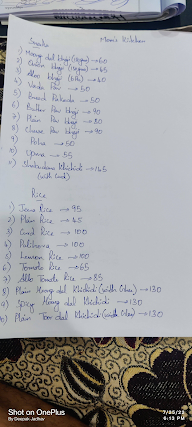 Snacks Mom's Kitchen
1) Moong dal bhaji (10pcs) → 60
2) Onion bhaji (10pcs) → 45
3) Aloo bhaji → 40
4) Vada Pav → 50
5) Bread Pakoda → 50
6) Butter Pav bhaji → 90
7) Plain Pav bhaji → 80
8) Cheese Pav bhaji → 90
9) Poha → 50
10) Upma → 55
11) Sabudana Khichdi → 145
(with Curd)
Rice
1) Jeera Rice → 95
2) Plain Rice → 45
3) Curd Rice → 100
4) Pulihora → 100
5) Lemon Rice → 100
6) Tomato Rice → 65
7) Aloo Tomato Rice → 85
8) Plain Moong dal Khichdi (with Ghee) → 130
9) Spicy Moong dal Khichdi → 130
10) Plain Toor dal Khichdi (with Ghee) → 130
Shot on OnePlus
By Deepak Jadhav
6:13 PM